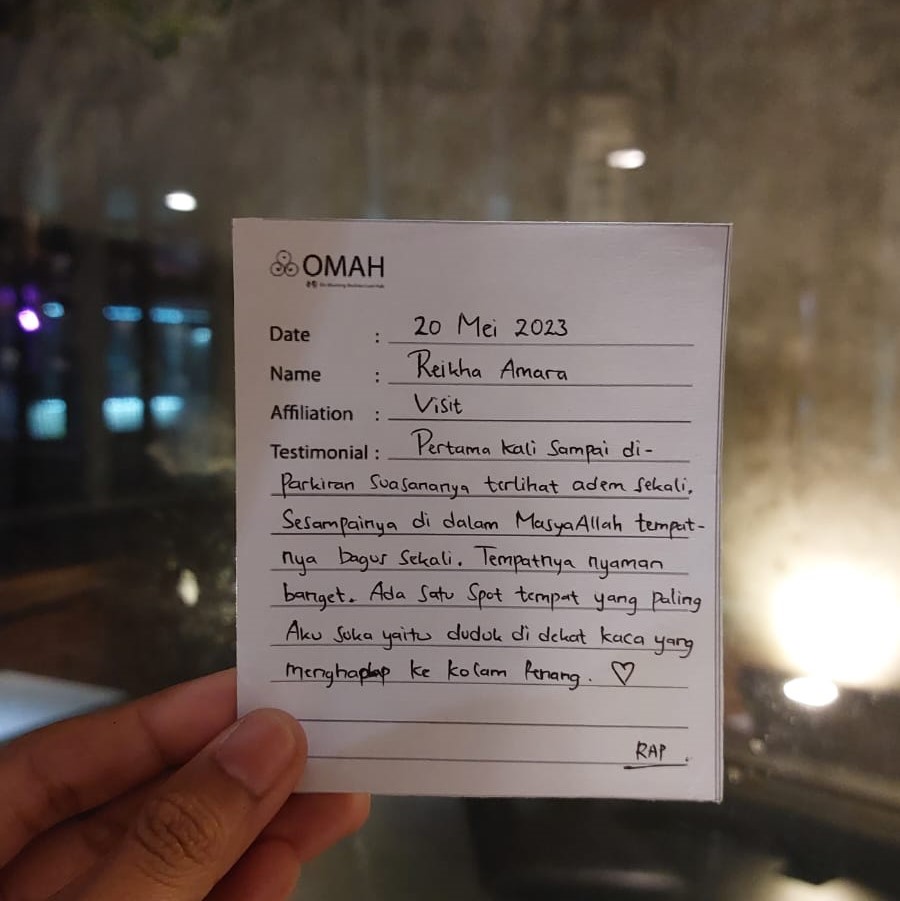 OMAH
Date : 20 Mei 2023
Name : Reikha Amara
Affiliation : Visit
Testimonial : Pertama kali sampai di-
Parkiran Suasananya terlihat adem sekali.
Sesampainya di dalam MasyaAllah tempat-
nya bagus sekali. Tempatnya nyaman
banget. Ada Satu Spot tempat yang paling
Aku Suka yaitu duduk di dekat kaca yang
menghadap ke kolam Renang. ♡
RAP.